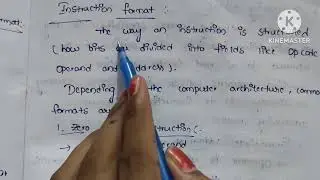 Instruction format:
format.
The way an instruction is structured
(how bits are divided into fields like Opcode
operand and address).
Depending the computer architecture, common
formats are
1. Zero
operand
KINEMASTER